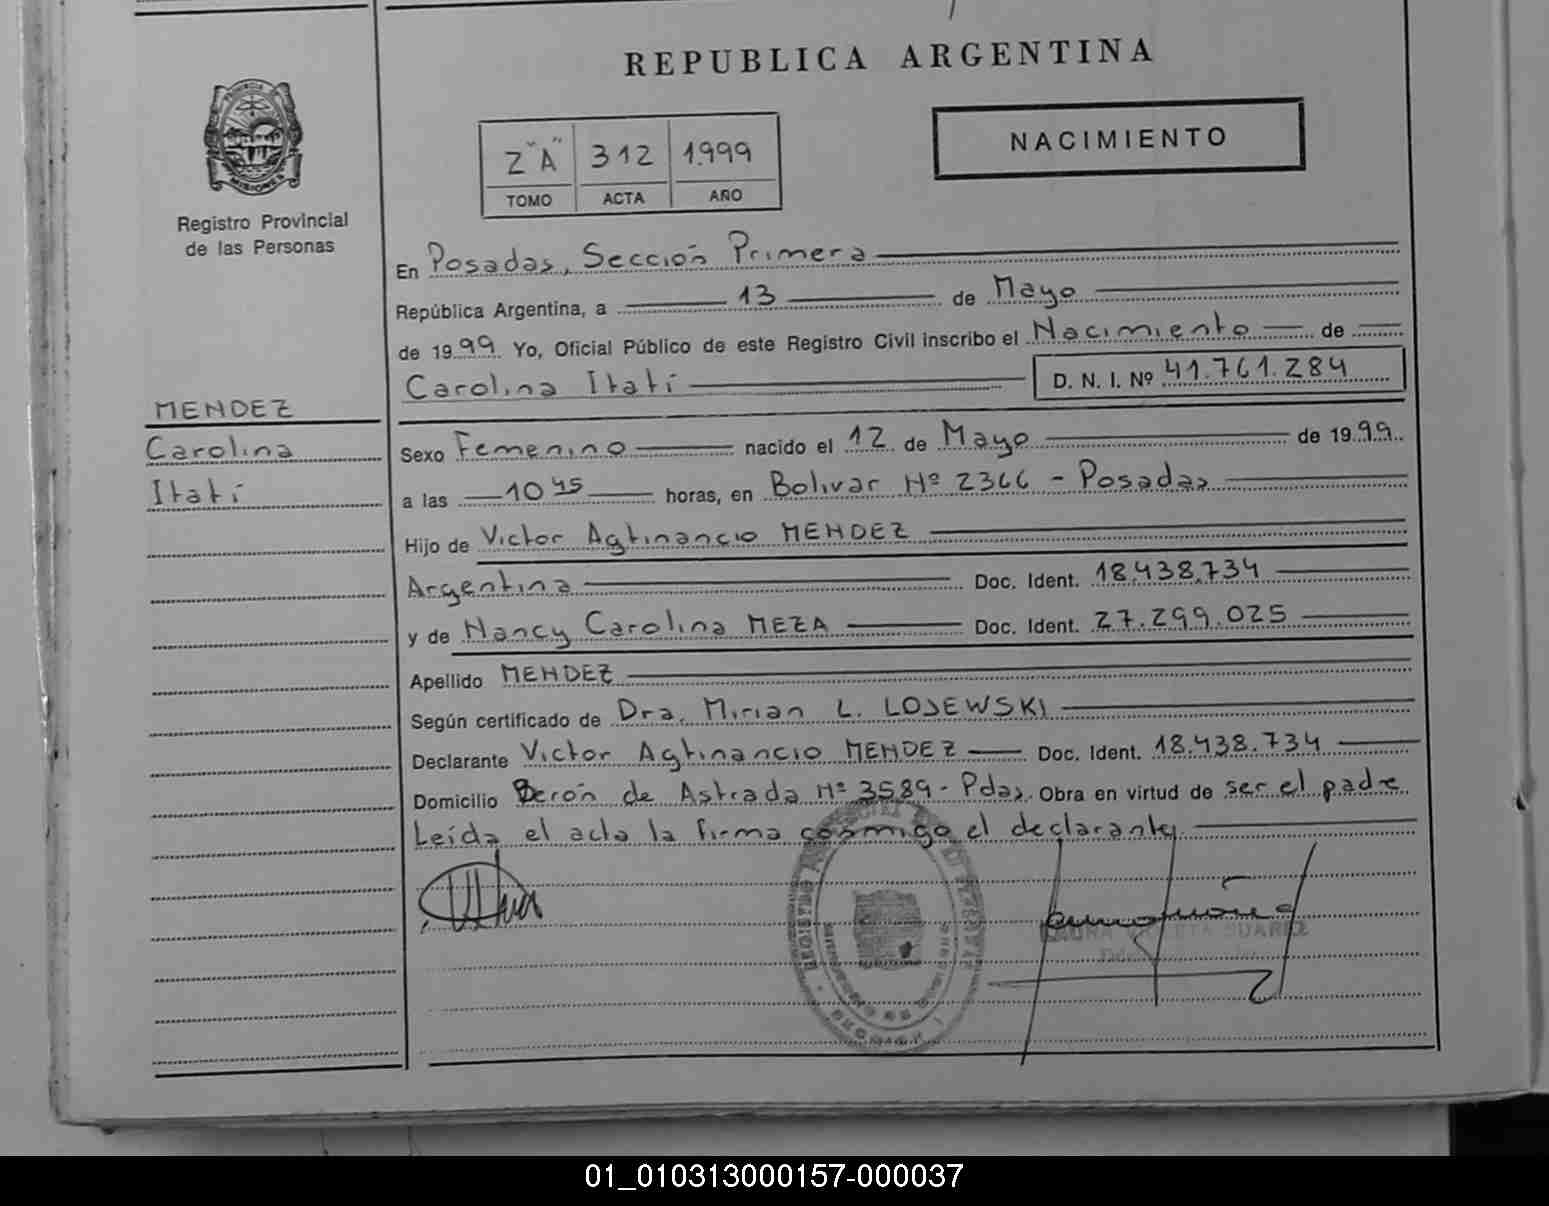 REPUBLICA ARGENTINA
PROVINCIA DE
MISIONES
Registro Provincial
de las Personas
2 "A" 312 1.999
TOMO ACTA AÑO
NACIMIENTO
En Posadas, Sección Primera
República Argentina, a 13 de Mayo
de 1999. Yo, Oficial Público de este Registro Civil inscribo el Nacimiento de
Carolina Itatí D. N. I. Nº 41.761.284
MENDEZ
Carolina
Itatí
Sexo Femenino nacido el 12 de Mayo de 1999.
a las 10 45 horas, en Bolivar Nº 2366 - Posadas
Hijo de Victor Agtinancio MENDEZ
Argentina Doc. Ident. 18.438.734
y de Nancy Carolina MEZA Doc. Ident. 27.299.025
Apellido MENDEZ
Según certificado de Dra. Mirian L. LOJEWSKI
Declarante Victor Agtinancio MENDEZ Doc. Ident. 18.438.734
Domicilio Berón de Astrada Nº 3589 - Pdas. Obra en virtud de ser el padre
Leída el acta la firma conmigo el declarante.
SUAREZ
01_010313000157-000037